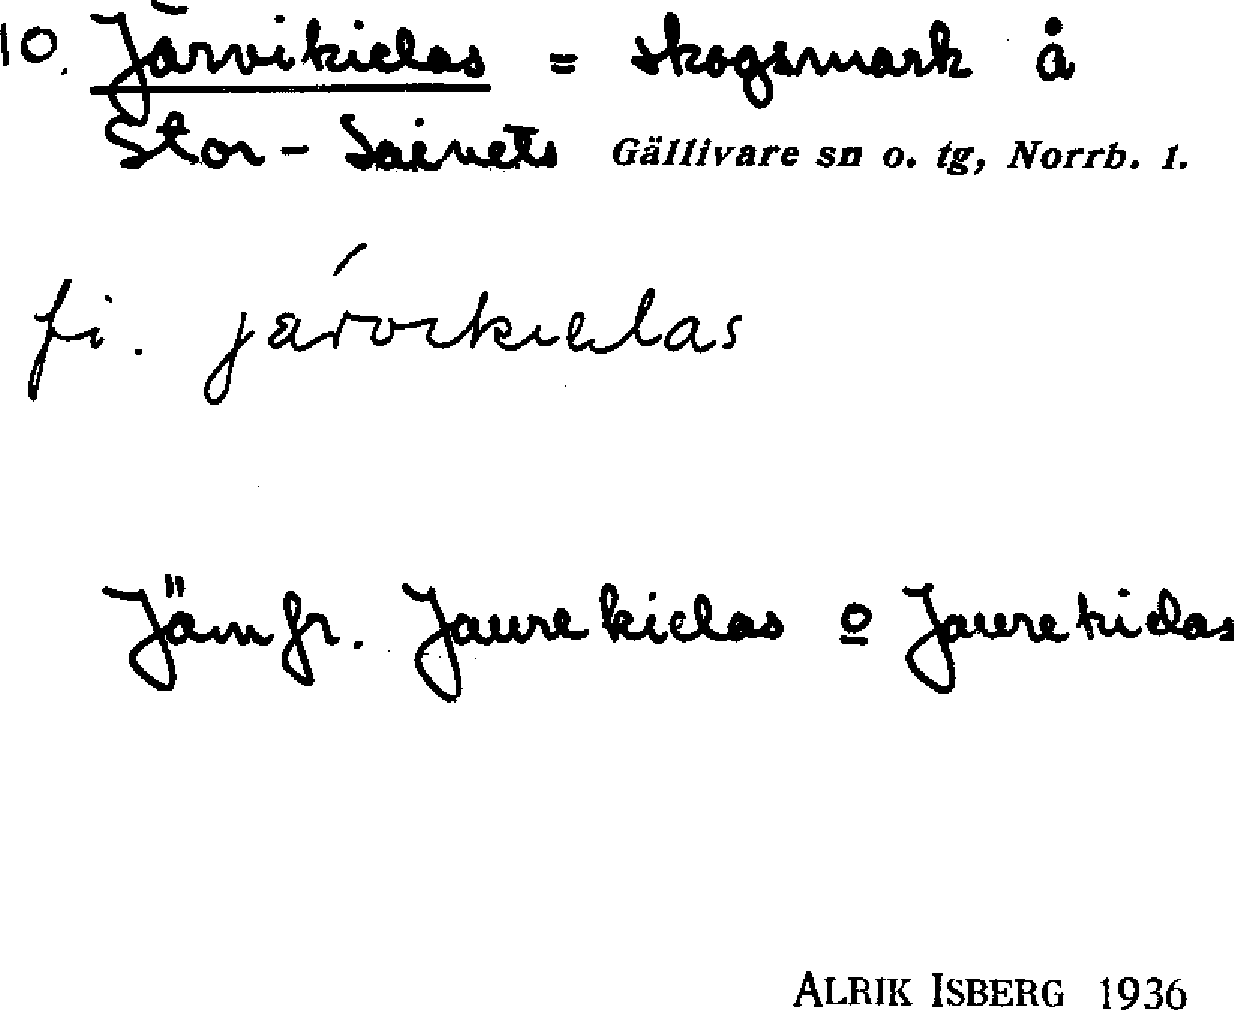 10. Järvikielas = skogsmark å
Stor-Saivets Gällivare sn o. tg, Norrb. l.
fi. járvikielas
Jämfr. Jaurekielas o Jaurekielas
ALRIK ISBERG 1936